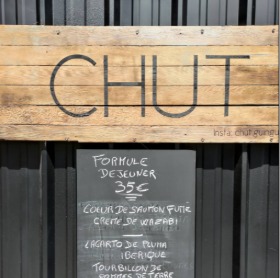 CHUT
insta: chut.guingu
FORMULE
DEJEUNER
35€
COEUR DE SAUMON FUMÉ
CREME DE WAZABI
LAGARTO DE PLUMA
IBERIQUE
TOURBILLON DE
POMMES DE TERRE